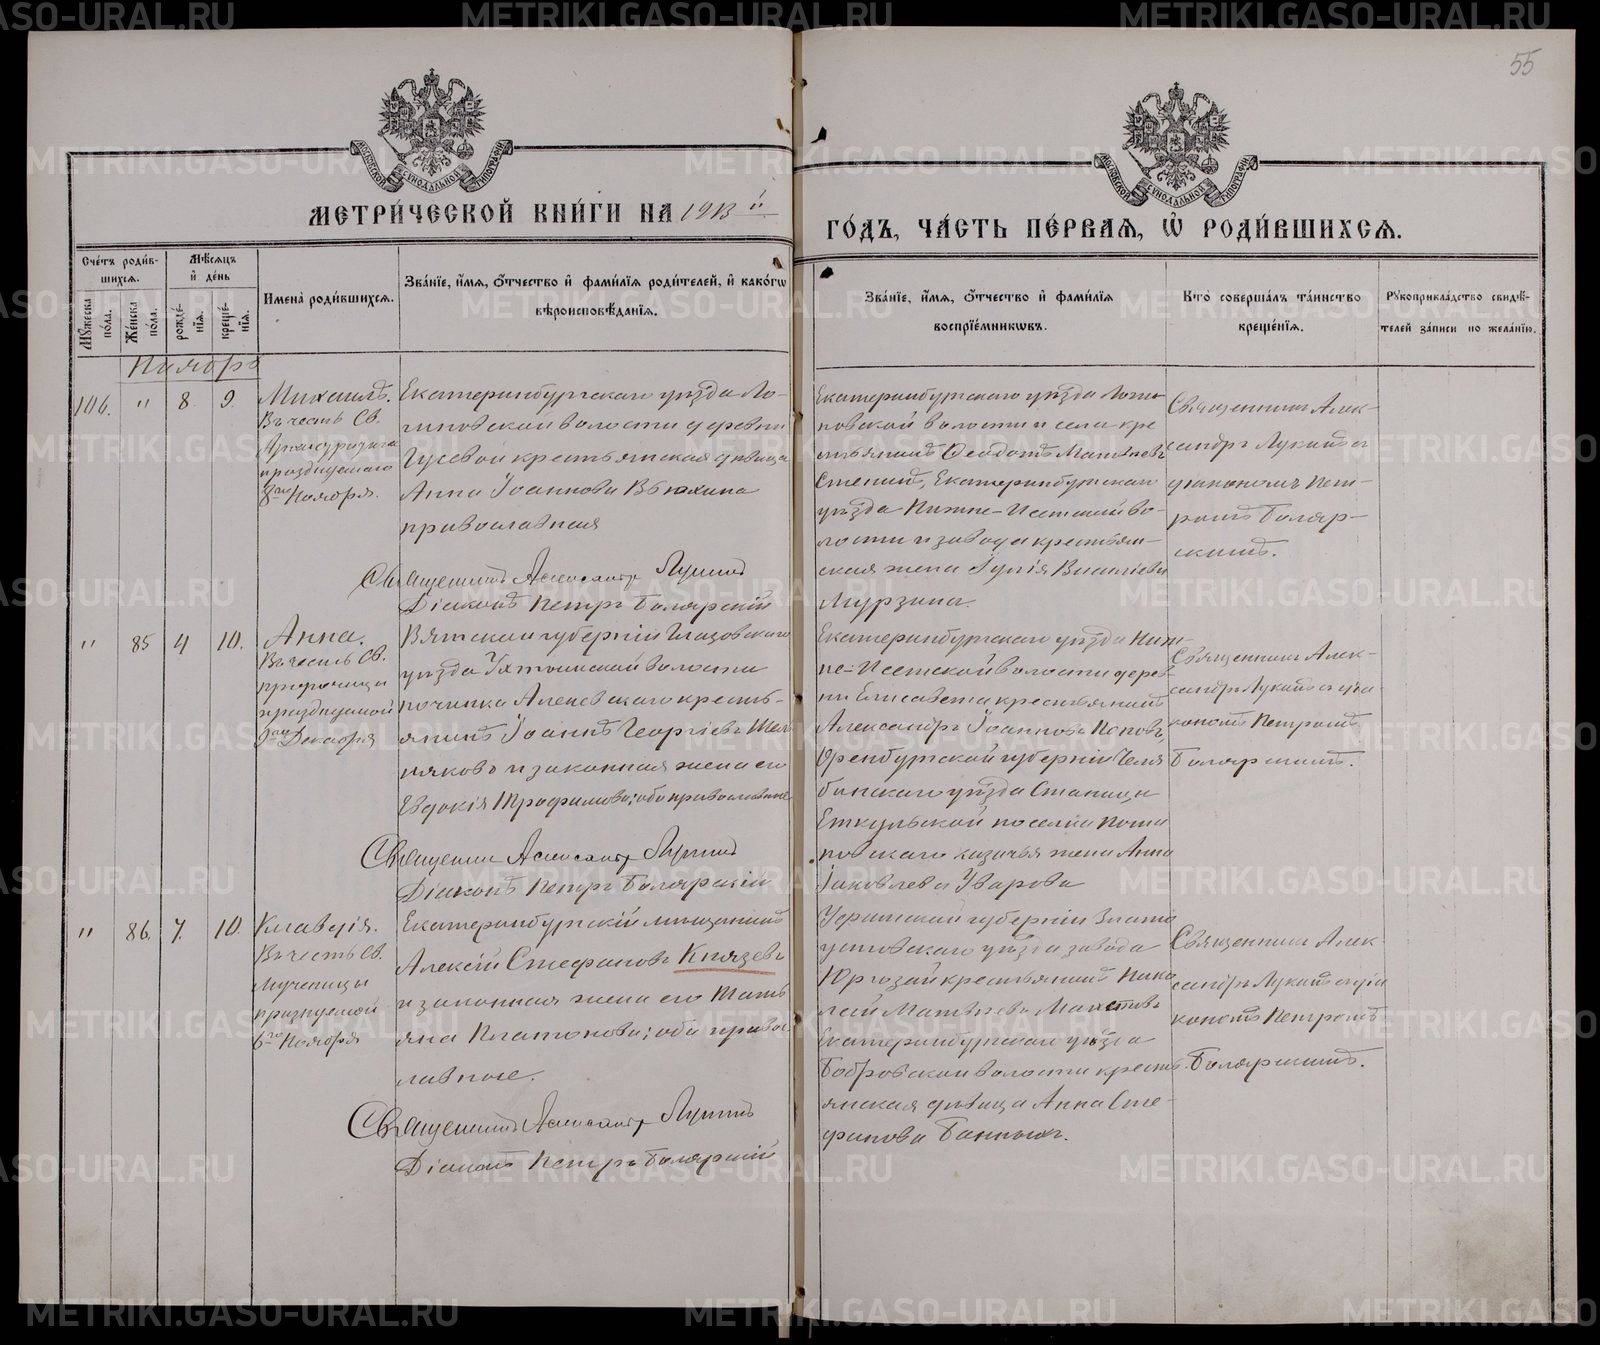 METRIKI.GASO-URAL.RU
55
МОСКОВСКОЙ СѴНОДАЛЬНОЙ ТИПОГРАФІИ
МОСКОВСКОЙ СѴНОДАЛЬНОЙ ТИПОГРАФІИ
МЕТРИ́ЧЕСКОЙ КНИ́ГИ НА 1913 й
ГО́ДЪ, ЧА́СТЬ ПЕ́РВАЯ, Ѡ РОДИ́ВШИХСЯ.
Сче́тъ роди́в-
шихся.
Мѣ́сяцъ
и҆ де́нь
Мꙋ́жеска по́ла.
Же́нска по́ла.
рожде́-
нїя.
креще́-
нїя.
Имена̀ роди́вшихся.
Зва́нїе, и҆́мя, ѻ҆́тчество и҆ фами́лїя роди́телей, и҆ како́гѡ
вѣроисповѣ́данїя.
Зва́нїе, и҆́мя, ѻ҆́тчество и҆ фами́лїя
воспрїе́мникѡвъ.
Кто̀ соверша́лъ та́инство
креще́нїя.
Рꙋкоприкла́дство свидѣ́-
телей за́писи по жела́нїю.
Ноябрь
106. " 8. 9.
Михаилъ.
Въ честь Св.
Архистратига
празднуемаго
8го Ноября.
Екатеринбургскаго уѣзда Ло-
гиновской волости деревни
Гусевой крестьянская дѣвица
Анна Іоаннова Вьюхина
православная
Священникъ Александръ Лукинъ
Діаконъ Петръ Боярскій
Екатеринбургскаго уѣзда Логи-
новской волости и села кре-
стьянинъ Ѳеодотъ Матвѣевъ
Екатеринбургскаго
уѣзда Нижне-Исетской во-
лости и завода крестьян-
ская жена Іулія Васильева
Мурзина.
Священникъ Алек-
сандръ Лукинъ съ
діакономъ Пет-
ромъ Бояр-
скимъ.
" 85 4 10.
Анна.
Въ честь Св.
пророчицы
празднуемой
9го Декабря
Вятской губерніи Глазовскаго
уѣзда Ухтымской волости
починка крестья-
янинъ Іоаннъ Георгіевъ
и законная жена его
Евдокія Трофимова; оба православные
Священникъ Александръ Лукинъ
Діаконъ Петръ Боярскій
Екатеринбургскаго уѣзда Ниж-
не-Исетской волости дерев-
ни Елисавета крестьянинъ
Александръ Іоанновъ Поповъ,
Оренбургской губерніи Челя-
бинскаго уѣзда Станицы
Еткульской поселка
казачья жена Анна
Іаковлева Уварова
Священникъ Алек-
сандръ Лукинъ съ діа-
кономъ Петромъ
Боярскимъ.
" 86. 7. 10.
Клавдія.
Въ честь Св.
Мученицы
празднуемой
6го Ноября
Екатеринбургскій мѣщанинъ
Алексій Стефановъ Князевъ
и законная жена его Тать-
яна Платонова; оба право-
славные.
Священникъ Александръ Лукинъ
Діаконъ Петръ Боярскій
Уфимской губерніи Злато-
устовскаго уѣзда завода
Юрюзани крестьянинъ Нико-
лай Матвѣевъ
Екатеринбургскаго уѣзда
Бобровской волости кресть-
янская дѣвица Анна Сте-
фанова Банныхъ.
Священникъ Алек-
сандръ Лукинъ съ діа-
кономъ Петромъ
Боярскимъ.